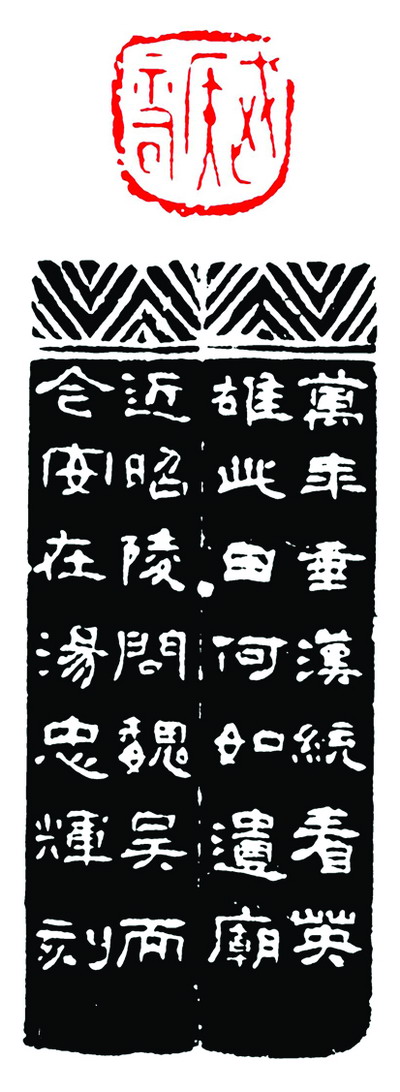 萬年垂漢統看英
雄此何如遺廟
近昭陵問魏吳而
今安在湯忠輝刻